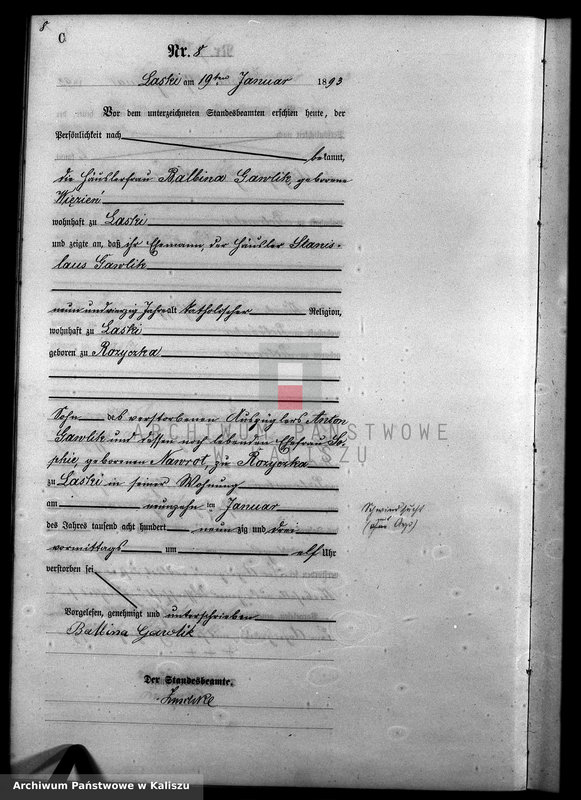 8
C
Nr. 8
Laski am 19ten Januar 1893
Vor dem unterzeichneten Standesbeamten erschien heute, der
Persönlichkeit nach
bekannt,
die Häuslerfrau Balbina Gawlik, geborene
Więzień
wohnhaft zu Laski
und zeigte an, daß ihr Ehemann, der Häusler Stanis-
laus Gawlik
neun und vierzig Jahre alt katholischer Religion,
wohnhaft zu Laski
geboren zu Rozyczka
Sohn des verstorbenen Auszüglers Anton
Gawlik und dessen noch lebenden Ehefrau So-
phie, geborenen Nawrot, zu Rozyczka
zu Laski in seiner Wohnung
am neunzehn ten Januar
des Jahres tausend acht hundert neunzig und drei
vormittags um elf Uhr
verstorben sei
Schwindsucht
Vorgelesen, genehmigt und unterschrieben
Balbina Gawlik
Der Standesbeamte.
ARCHIWUM PAŃSTWOWE
W KALISZU
Archiwum Państwowe w Kaliszu